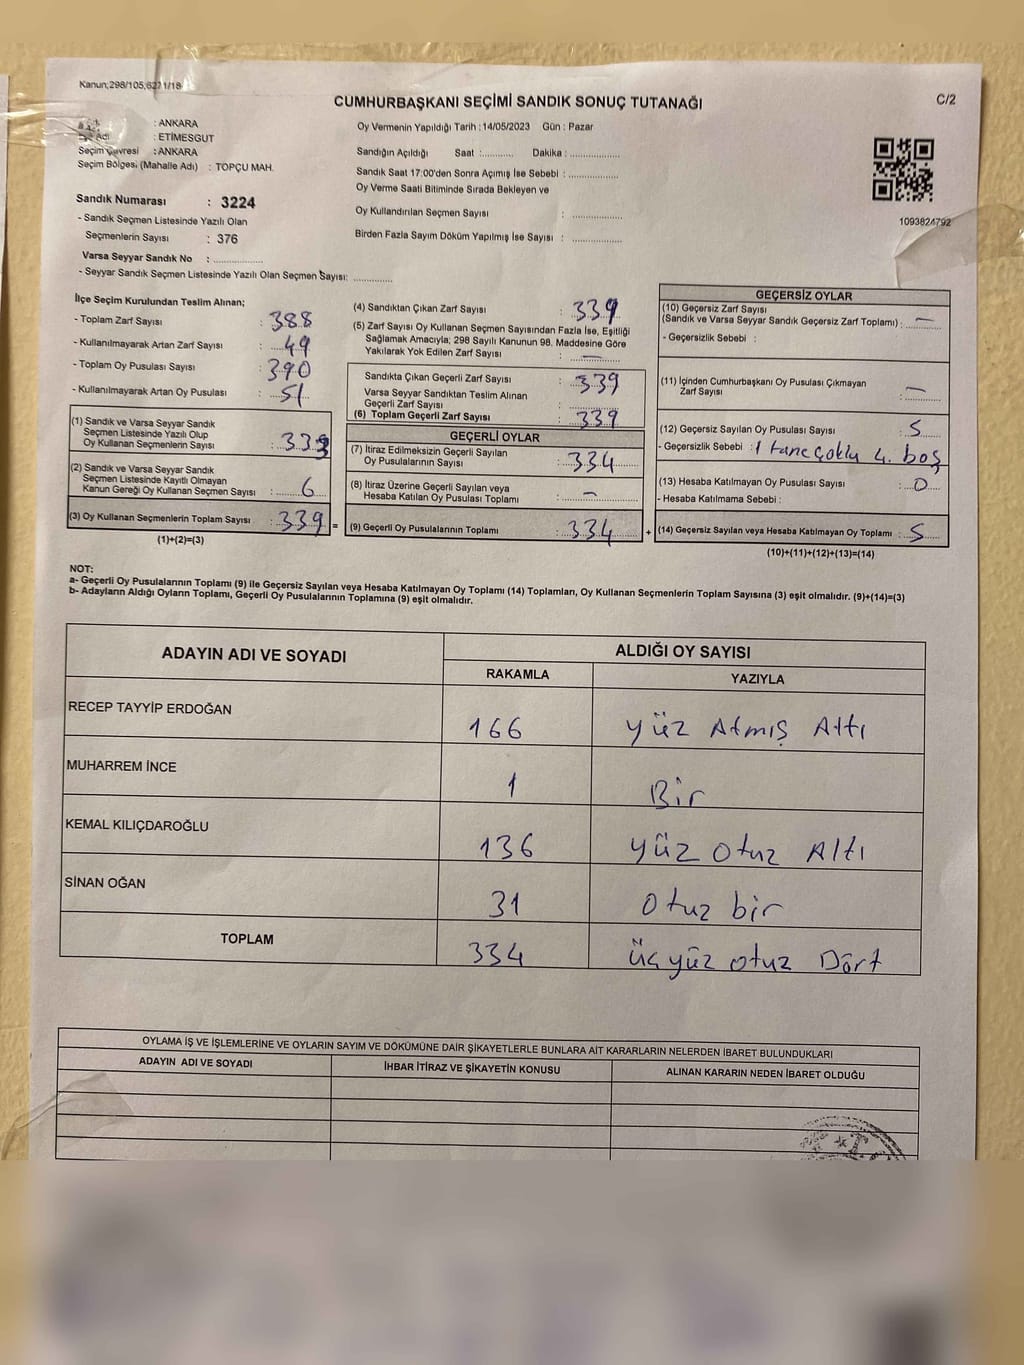 Kanun;298/105,6271/18
CUMHURBAŞKANI SEÇİMİ SANDIK SONUÇ TUTANAĞI
C/2
: ANKARA
Adı : ETİMESGUT
Seçim Çevresi : ANKARA
Seçim Bölgesi (Mahalle Adı) : TOPÇU MAH.
Oy Vermenin Yapıldığı Tarih : 14/05/2023 Gün : Pazar
Sandığın Açıldığı Saat :........... Dakika : ................
Sandık Saat 17:00'den Sonra Açımış İse Sebebi : ................
Oy Verme Saati Bitiminde Sırada Bekleyen ve
Oy Kullandırılan Seçmen Sayısı : ................
Birden Fazla Sayım Döküm Yapılmış İse Sayısı : ................
1093824792
Sandık Numarası : 3224
- Sandık Seçmen Listesinde Yazılı Olan
Seçmenlerin Sayısı : 376
Varsa Seyyar Sandık No : ................
- Seyyar Sandık Seçmen Listesinde Yazılı Olan Seçmen Sayısı: ............
İlçe Seçim Kurulundan Teslim Alınan;
- Toplam Zarf Sayısı : 388
- Kullanılmayarak Artan Zarf Sayısı : 49
- Toplam Oy Pusulası Sayısı : 390
- Kullanılmayarak Artan Oy Pusulası : 51
(1) Sandık ve Varsa Seyyar Sandık
Seçmen Listesinde Yazılı Olup
Oy Kullanan Seçmenlerin Sayısı : 333
(2) Sandık ve Varsa Seyyar Sandık
Seçmen Listesinde Kayıtlı Olmayan
Kanun Gereği Oy Kullanan Seçmen Sayısı : 6
(3) Oy Kullanan Seçmenlerin Toplam Sayısı : 339 =
(1)+(2)=(3)
(4) Sandıktan Çıkan Zarf Sayısı : 339
(5) Zarf Sayısı Oy Kullanan Seçmen Sayısından Fazla İse, Eşitliği
Sağlamak Amacıyla; 298 Sayılı Kanunun 98. Maddesine Göre
Yakılarak Yok Edilen Zarf Sayısı : —
Sandıkta Çıkan Geçerli Zarf Sayısı : 339
Varsa Seyyar Sandıktan Teslim Alınan
Geçerli Zarf Sayısı : ............
(6) Toplam Geçerli Zarf Sayısı : 339
GEÇERLİ OYLAR
(7) İtiraz Edilmeksizin Geçerli Sayılan
Oy Pusulalarının Sayısı : 334
(8) İtiraz Üzerine Geçerli Sayılan veya
Hesaba Katılan Oy Pusulası Toplamı : —
(9) Geçerli Oy Pusulalarının Toplamı : 334 +
GEÇERSİZ OYLAR
(10) Geçersiz Zarf Sayısı
(Sandık ve Varsa Seyyar Sandık Geçersiz Zarf Toplamı) : —
- Geçersizlik Sebebi :
(11) İçinden Cumhurbaşkanı Oy Pusulası Çıkmayan
Zarf Sayısı : —
(12) Geçersiz Sayılan Oy Pusulası Sayısı : 5
- Geçersizlik Sebebi : 1 tane çoklu 4. boş
(13) Hesaba Katılmayan Oy Pusulası Sayısı : 0
- Hesaba Katılmama Sebebi :
(14) Geçersiz Sayılan veya Hesaba Katılmayan Oy Toplamı : 5
(10)+(11)+(12)+(13)=(14)
NOT:
a- Geçerli Oy Pusulalarının Toplamı (9) ile Geçersiz Sayılan veya Hesaba Katılmayan Oy Toplamı (14) Toplamları, Oy Kullanan Seçmenlerin Toplam Sayısına (3) eşit olmalıdır. (9)+(14)=(3)
b- Adayların Aldığı Oyların Toplamı, Geçerli Oy Pusulalarının Toplamına (9) eşit olmalıdır.
ADAYIN ADI VE SOYADI
ALDIĞI OY SAYISI
RAKAMLA YAZIYLA
RECEP TAYYİP ERDOĞAN 166 yüz Atmış Altı
MUHARREM İNCE 1 Bir
KEMAL KILIÇDAROĞLU 136 yüz otuz Altı
SİNAN OĞAN 31 otuz bir
TOPLAM 334 üçyüz otuz Dört
OYLAMA İŞ VE İŞLEMLERİNE VE OYLARIN SAYIM VE DÖKÜMÜNE DAİR ŞİKAYETLERLE BUNLARA AİT KARARLARIN NELERDEN İBARET BULUNDUKLARI
ADAYIN ADI VE SOYADI İHBAR İTİRAZ VE ŞİKAYETİN KONUSU ALINAN KARARIN NEDEN İBARET OLDUĞU